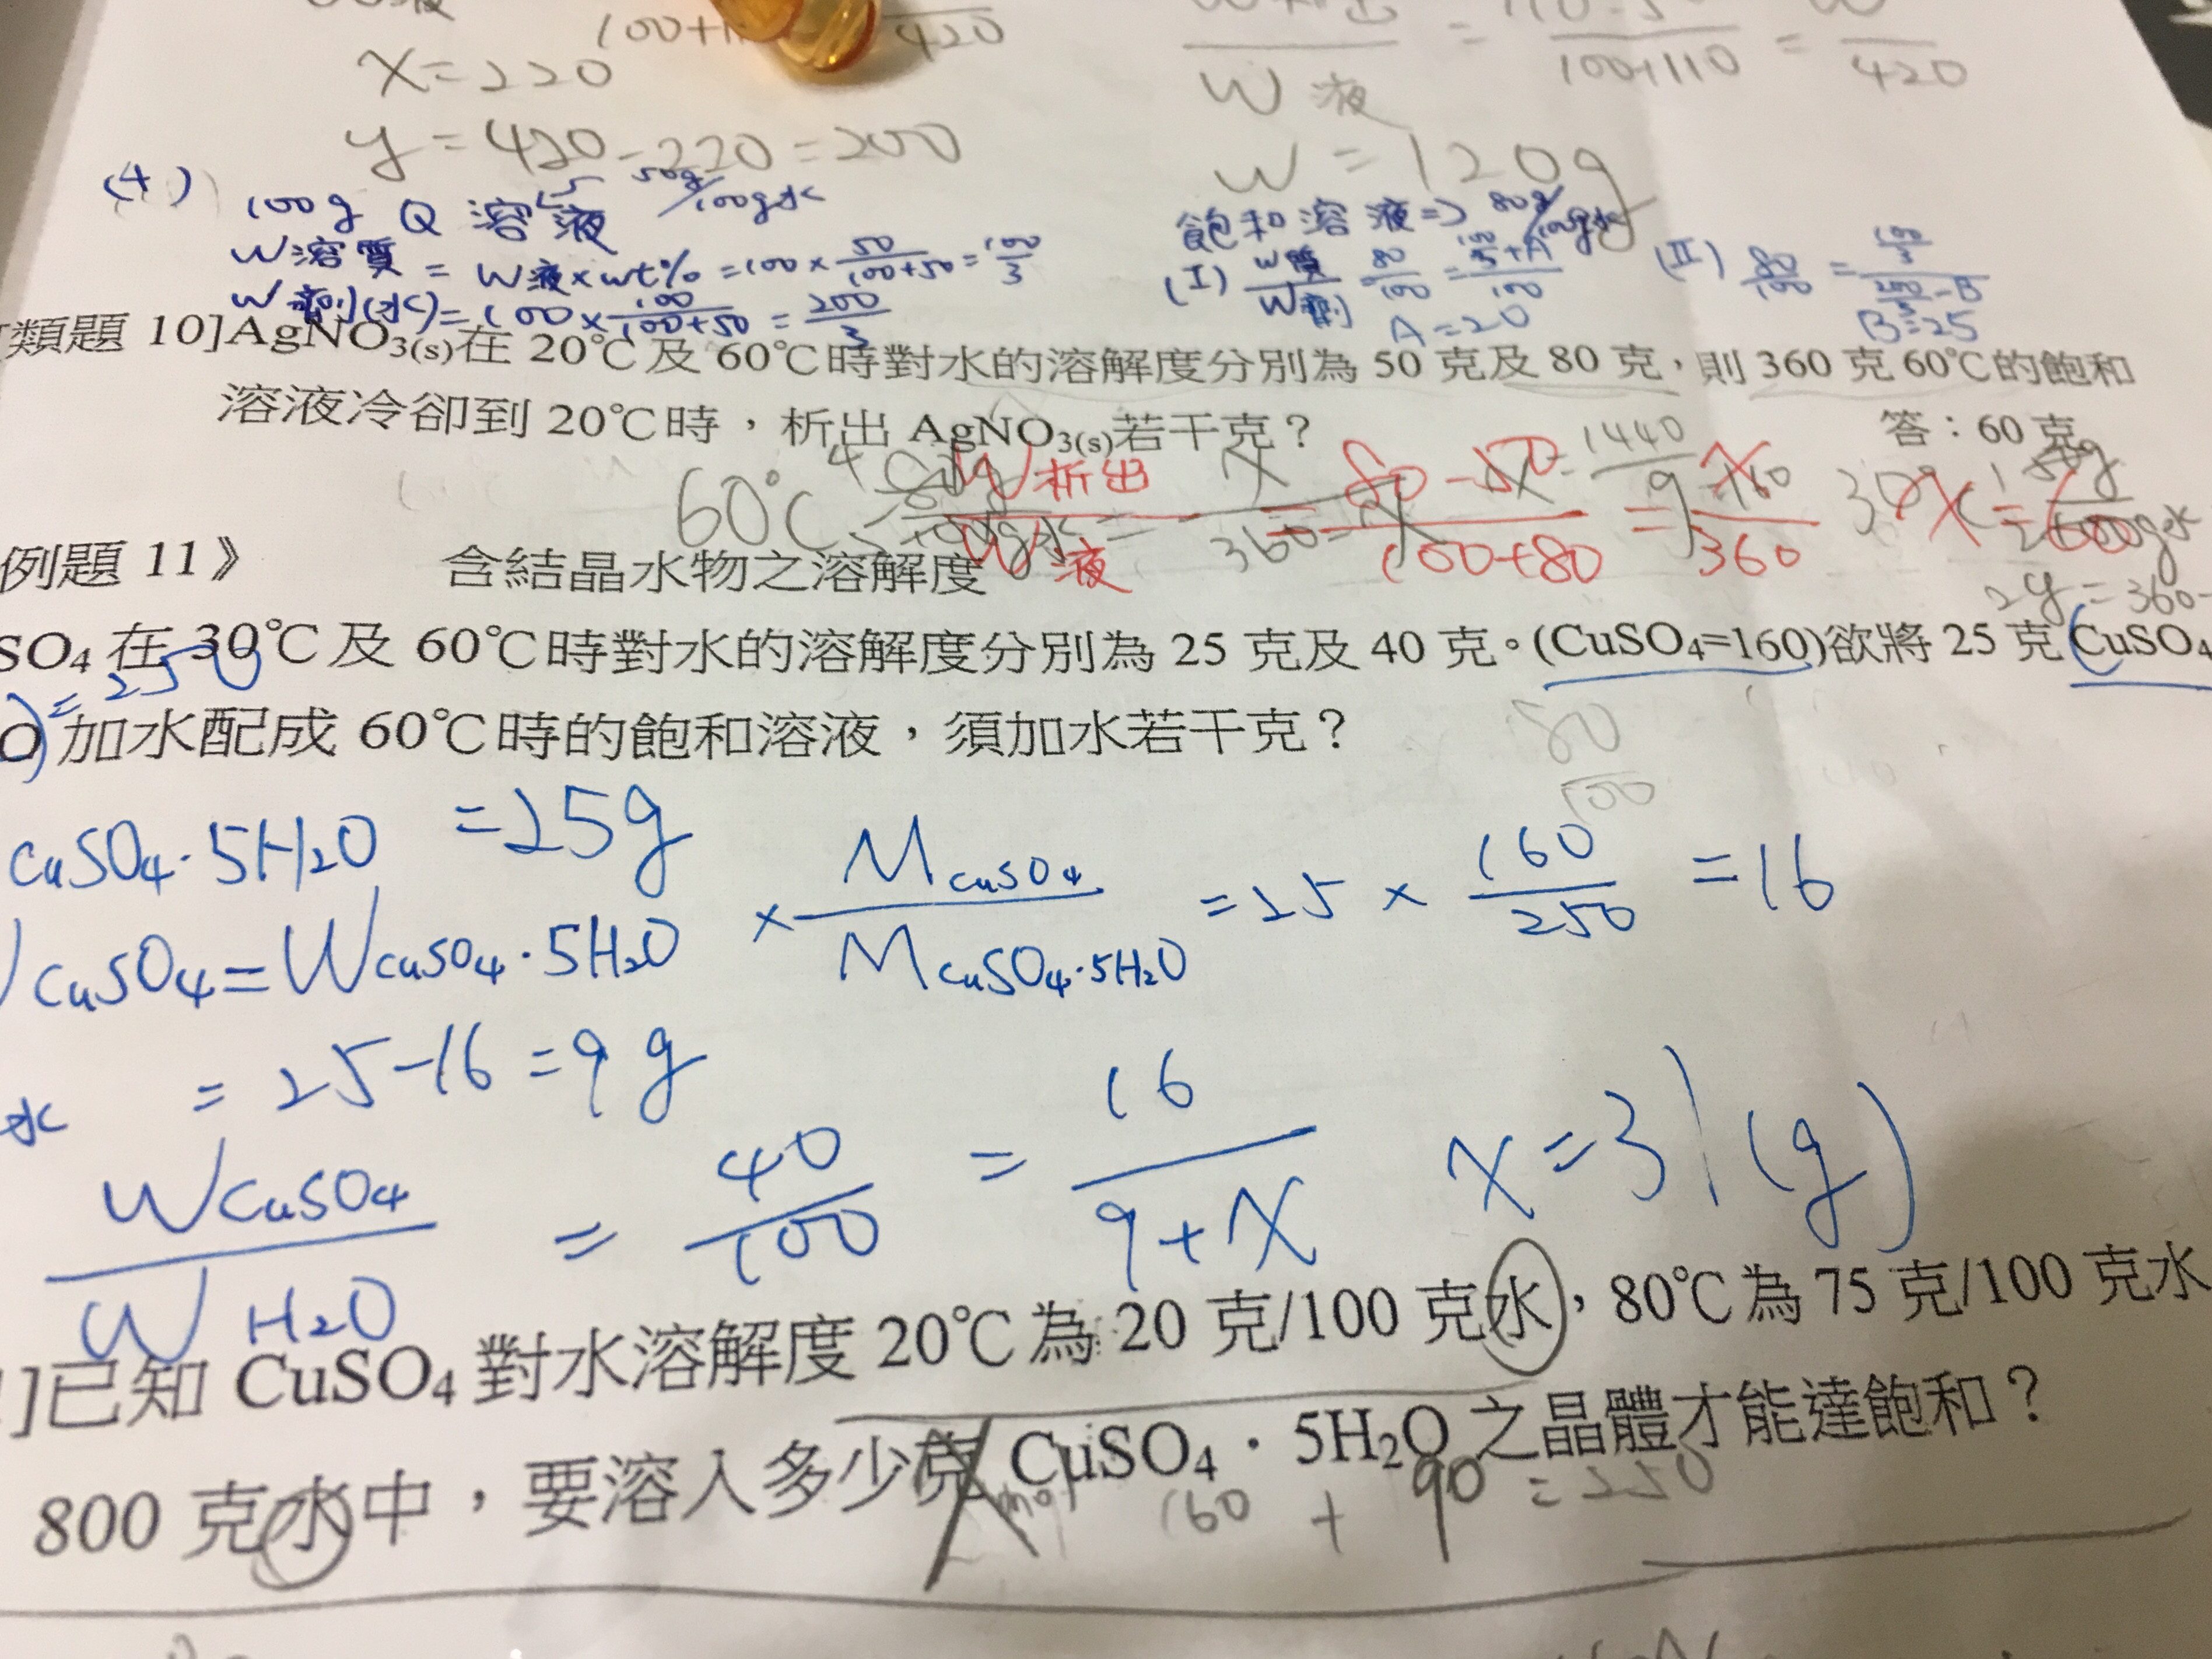 x=220
420
y=420-220=200
W液
100+110 = 420
W=120g
(4) 100g Q溶液 50g/100g水
W溶質 = W液×wt% =100×50/(100+50)=100/3
W劑(水)=100×100/(100+50)=200/3
飽和溶液⇒80g/100g水
(I) W質/W劑 80/100
A=20
(II) 80/100 = (100/3)/(200/3-B)
B=25
類題 10]AgNO3(s)在 20℃及 60℃時對水的溶解度分別為 50 克及 80 克,則 360 克 60℃的飽和
溶液冷卻到 20℃時,析出 AgNO3(s)若干克? 答:60 克
60℃
W析出/W液 = (80-50)/(100+80) = x/360 x=60
例題 11》 含結晶水物之溶解度
SO4 在 30℃及 60℃時對水的溶解度分別為 25 克及 40 克。(CuSO4=160)欲將 25 克 (CuSO4
=250
O)加水配成 60℃時的飽和溶液,須加水若干克?
80/100
CuSO4·5H2O =25g
CuSO4=W CuSO4·5H2O × M CuSO4/M CuSO4·5H2O =25×160/250 =16
水 =25-16=9g
W CuSO4/W H2O = 40/100 = 16/(9+x) x=31(g)
]已知 CuSO4 對水溶解度 20℃為 20 克/100 克水,80℃為 75 克/100 克水
800 克水中,要溶入多少克 CuSO4·5H2O 之晶體才能達飽和?
mol 160 + 90 =250